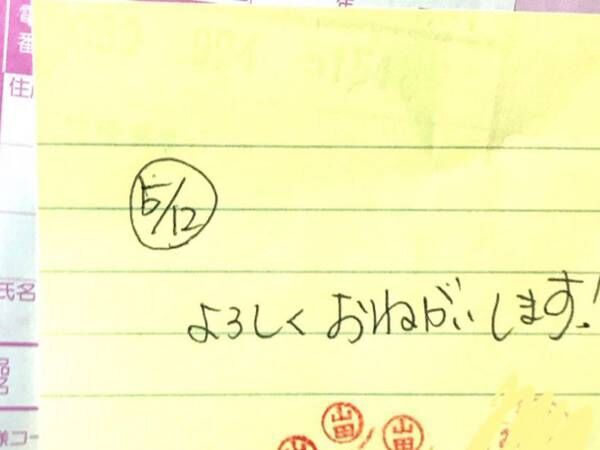 番
住
5/12
よろしくおねがいします!
氏名
品名
様コー
山田
山田